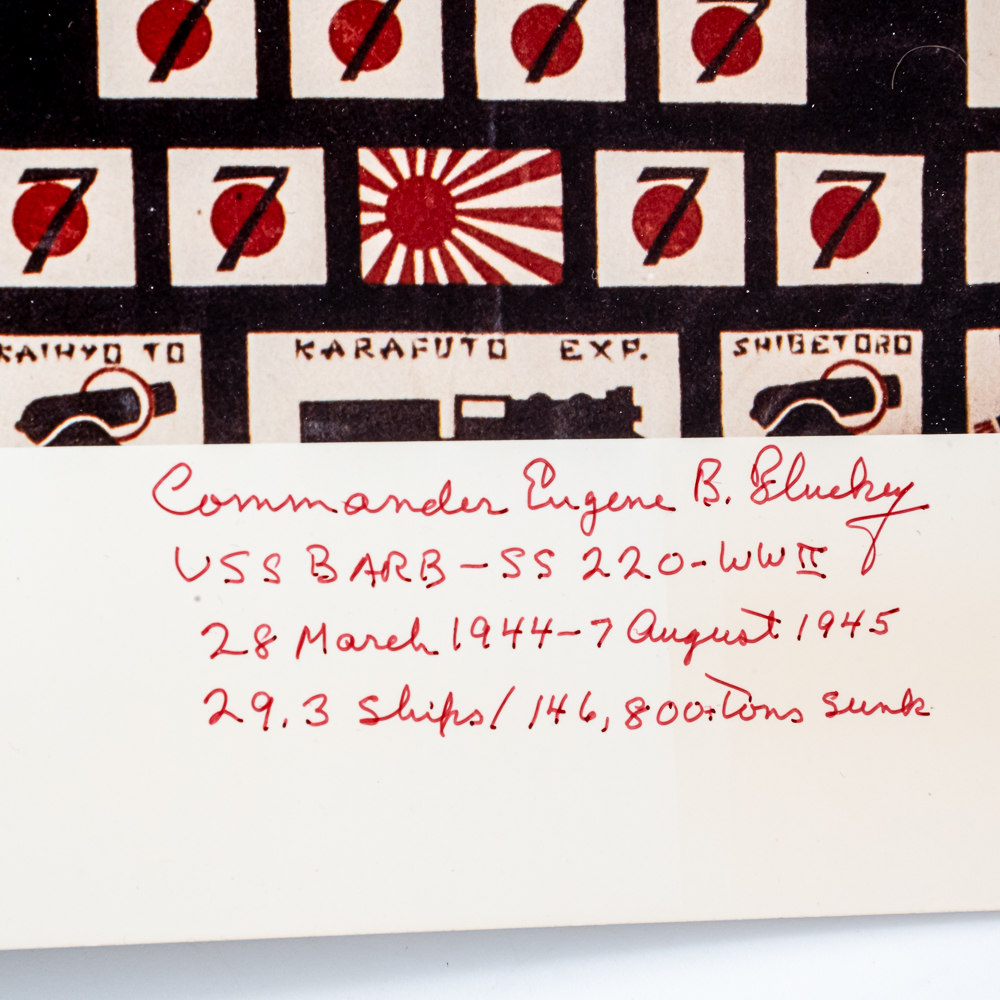 7 7 7 7
7 7 7 7
KAIHYO TO KARAFUTO EXP. SHIBETORO
Commander Eugene B. Fluckey
USS BARB-SS 220-WWII
28 March 1944-7 August 1945
29.3 Ships/146,800 Tons sunk